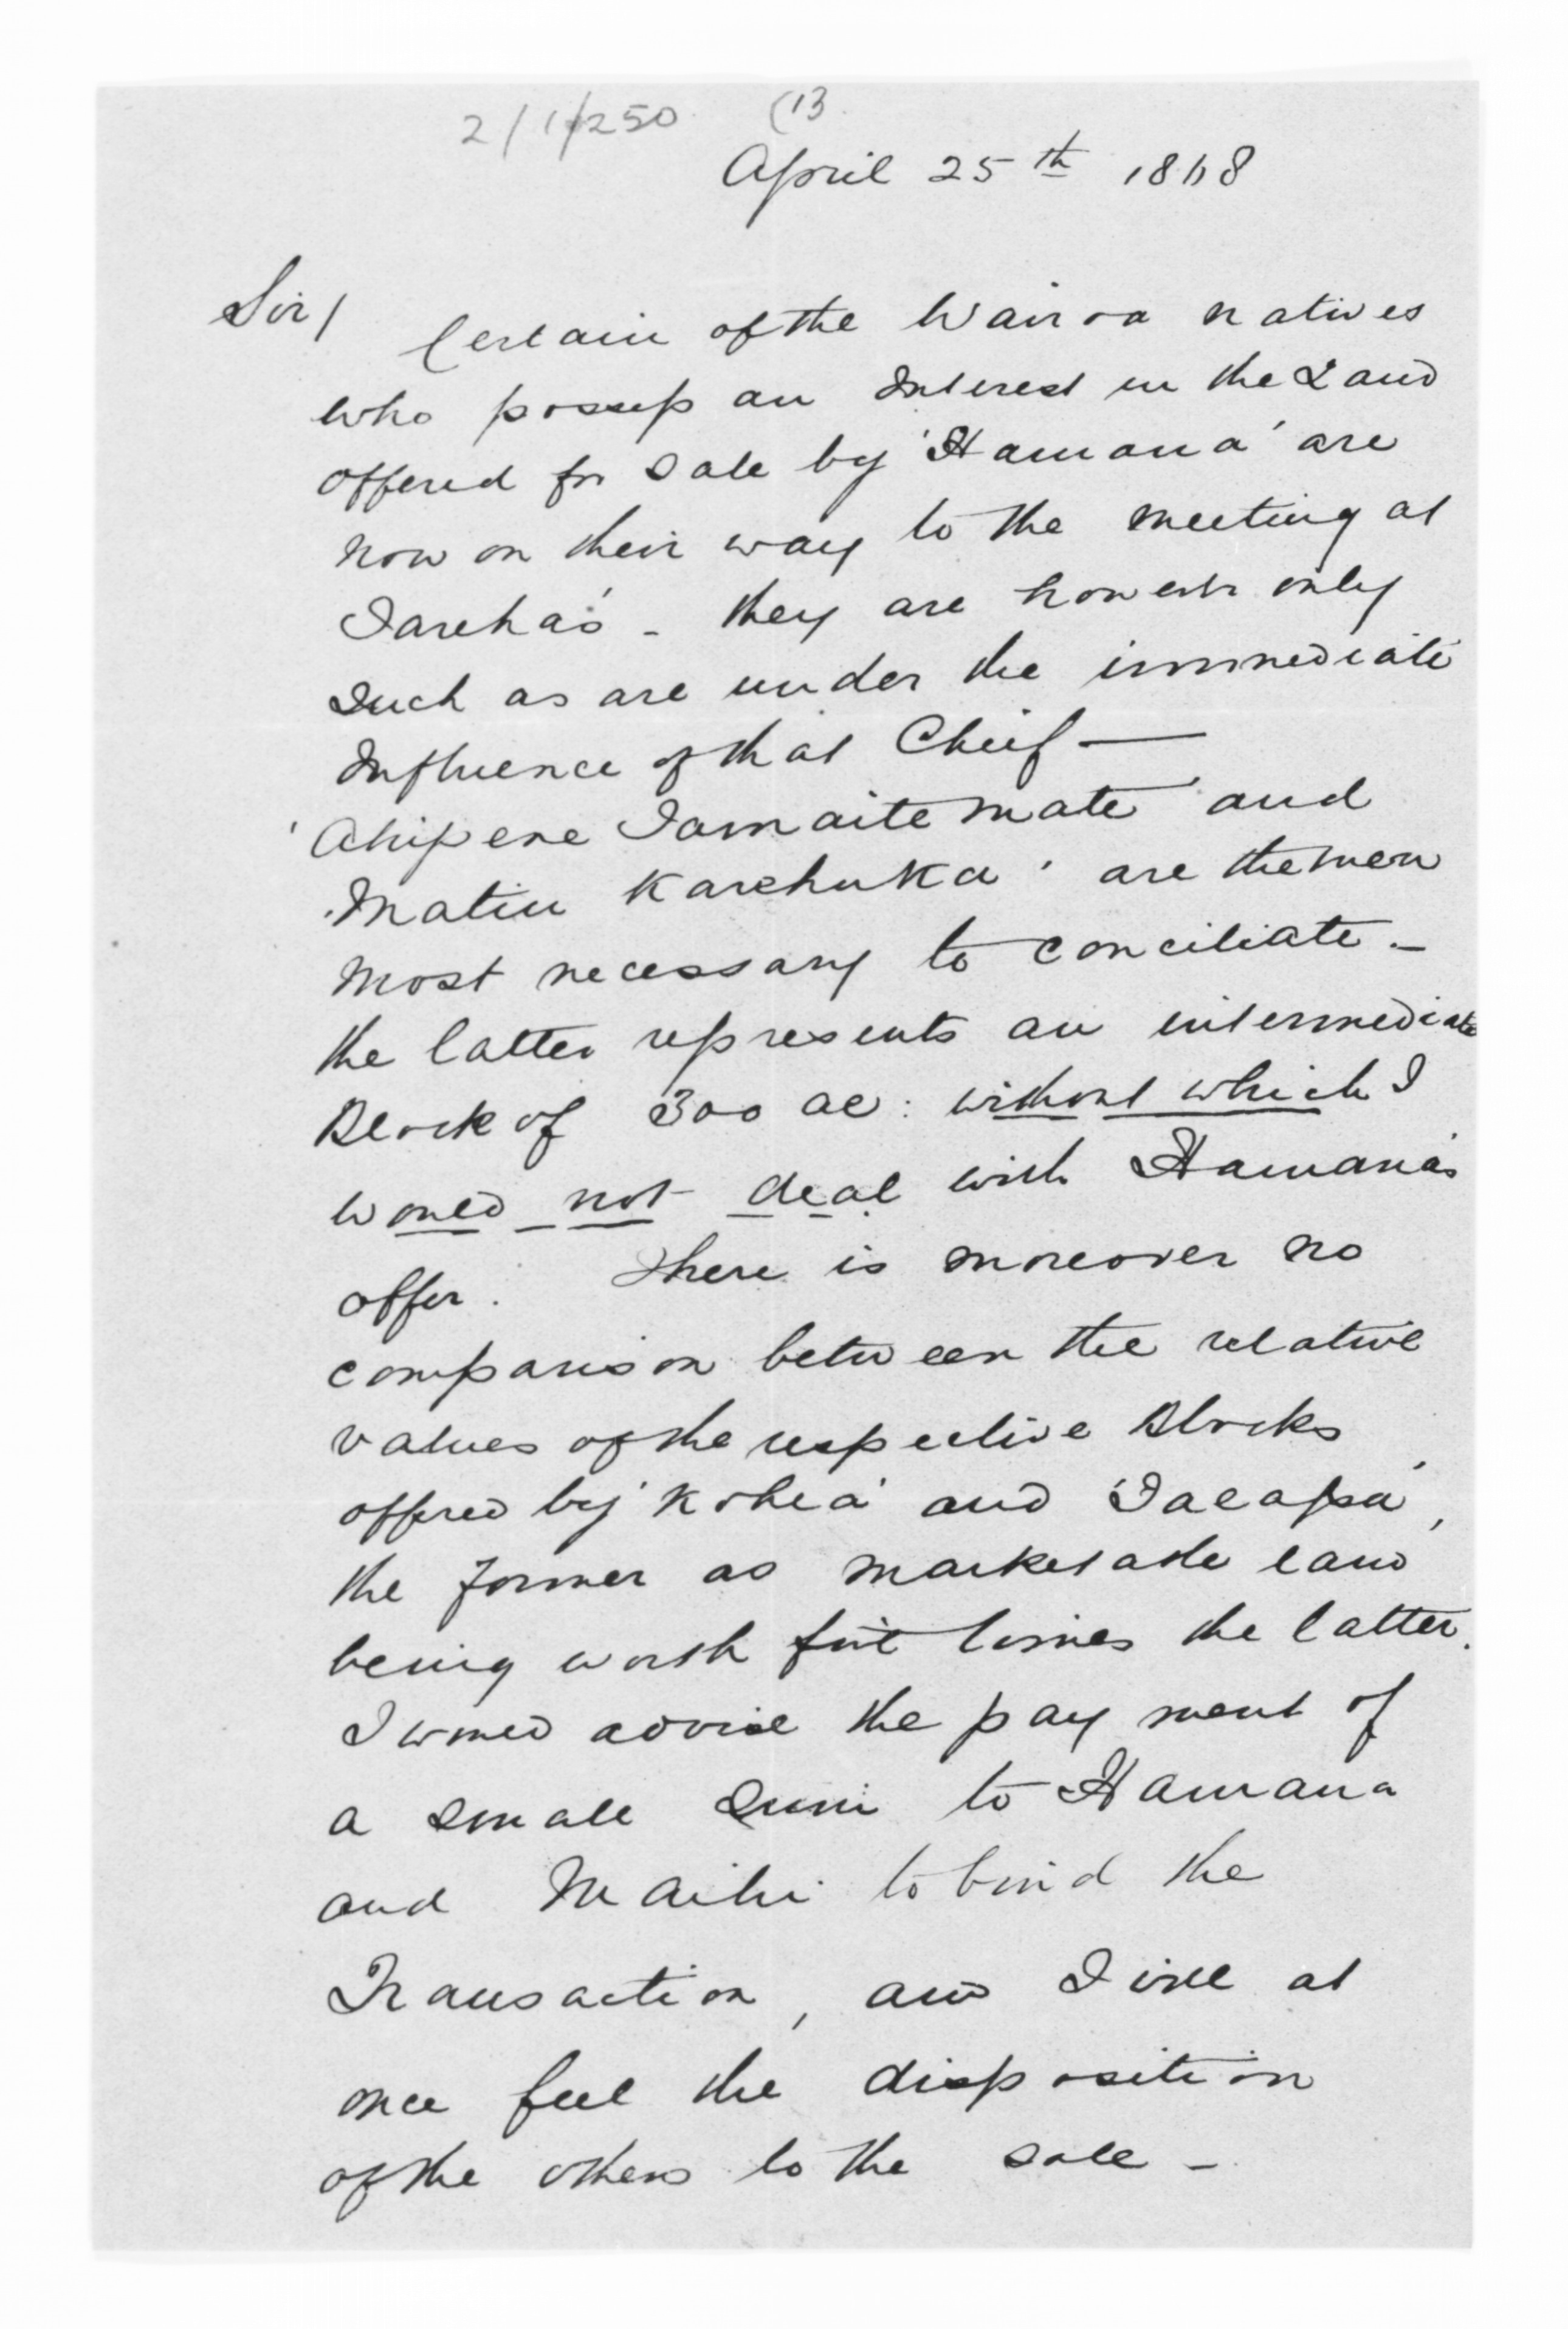 2/1/250 (13
April 25th 1868
Sir/ Certain of the Wairoa natives
who possess an Interest in the Land
offered for Sale by 'Hamana' are
now on their way to the meeting at
Tareha's - they are however only
Such as are under the immediate
Influence of that Chief —
'Ahipene Tamaitemate' and
'Matiu Karehuka' are the men
most necessary to conciliate. -
the latter represents an intermediate
Block of 300 ac: without which I
would not deal with Hamana's
offer. There is moreover no
comparison between the relative
values of the respective Blocks
offered by 'Kohea' and 'Tacapa',
the former as marketable land
being worth five times the latter.
I would advise the payment of
a small Sum to Hamana
and Maihi to bind the
Transaction, and I will at
once feel the disposition
of the others to the sale -